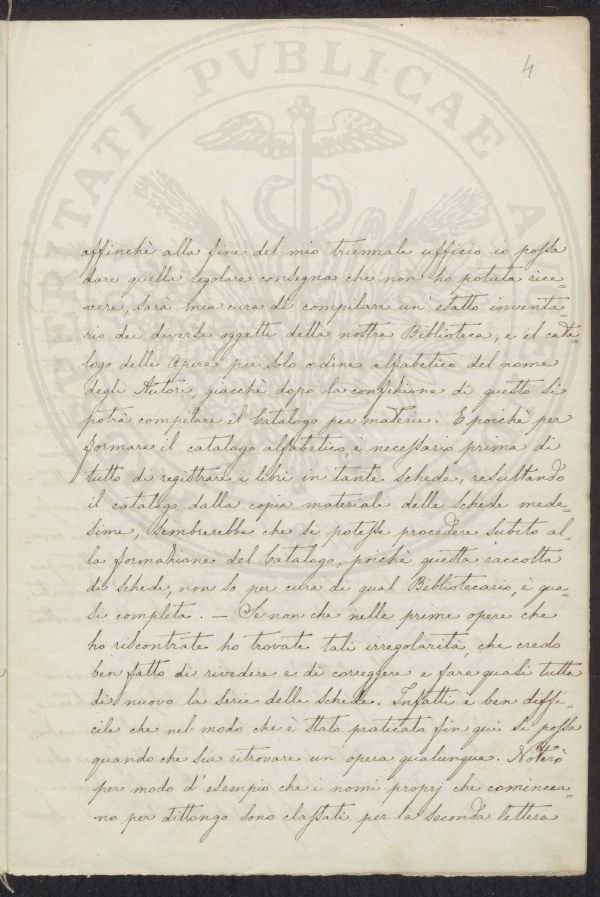 4
affinchè alla fine del mio triennale ufficio io possa
dare quella regolare consegna che non ho potuta rice-
vere, sarà mia cura di compilare un' esatto inventa-
rio dei diversi oggetti della nostra Biblioteca, e il cata-
logo delle Opere per solo ordine alfabetico del nome
degli Autori, giacchè dopo la confezione di questo si
potrà compilare il Catalogo per materie. E poichè per
formare il catalogo alfabetico è necessario prima di
tutto di registrare i libri in tante schede, resultando
il catalogo dalla copia materiale delle schede mede-
sime, sembrerebbe che si potesse procedere subito al-
la formazione del Catalogo, poichè questa raccolta
di schede, non so per cura di qual Bibliotecario, è qua-
si completa. — Se non che nelle prime opere che
ho riscontrate ho trovate tali irregolarità, che credo
ben fatto di rivedere e di correggere e fare quasi tutta
di nuovo la serie delle schede. Infatti è ben diffi-
cile che nel modo che è stato praticato fin qui si possa
quando che sia ritrovare un opera qualunque. Noterò
per modo d'esempio che i nomi proprj che comincea-
no per dittongo sono classati per la seconda lettera
PVBLICAE